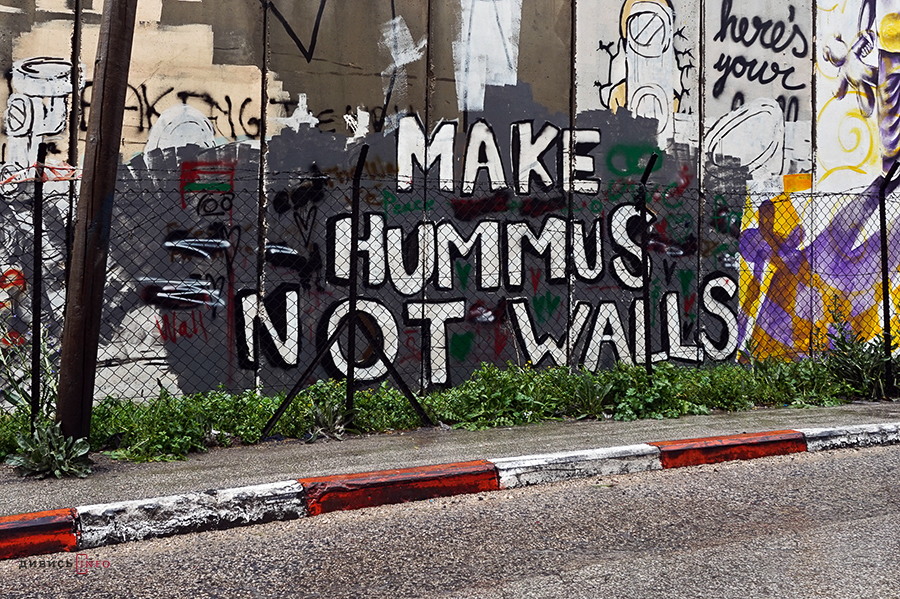 here's
your
MAKE
HUMMUS
NOT WALLS
Peace
Wall
ДИВИСЬ INFO